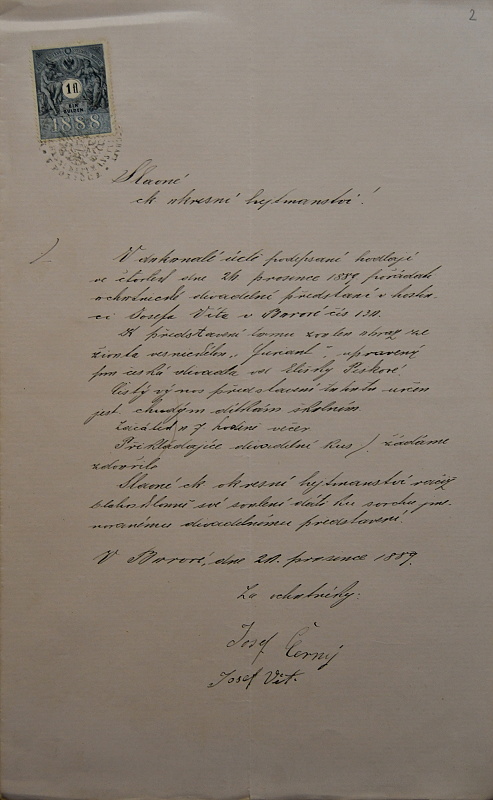 2
1 fl
EIN
GULDEN
1888
Slavné
ck okresní hejtmanství!
V dokonalé úctě podepsaní hodlají
ve čtvrtek dne 26 prosence 1889 pořádati
ochotnické divadelní představení v hostin-
ci Josefa Víta v Borové čís 130.
K představení tomu zvolen obraz ze
života vesnického „Furiant", upravený
pro česká divadla od Elišky Peškové.
Čistý výnos představení tohoto určen
jest chudým dítkám školním.
Začátek o 7 hodině večer
Přikládajíce divadelní kus /. žádáme
zdvořile
Slavné ck okresní hejtmanství račiž
blahosklonně své svolení dáti ku svrchu jme-
novanému divadelnímu představení.
V Borové, dne 20. prosence 1889.
Za ochotníky:
Josef Černý
Josef Vít.